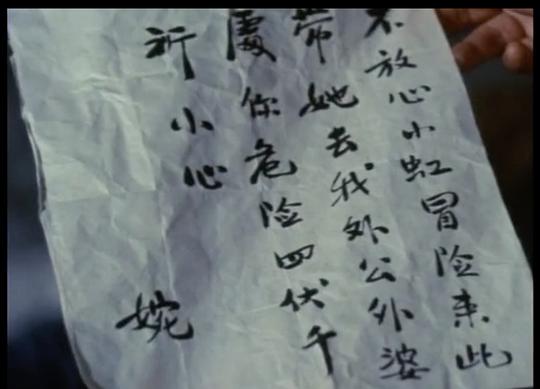 不放心小虹冒险来此
带她去我外公外婆
處你危险四伏千
祈小心
婉